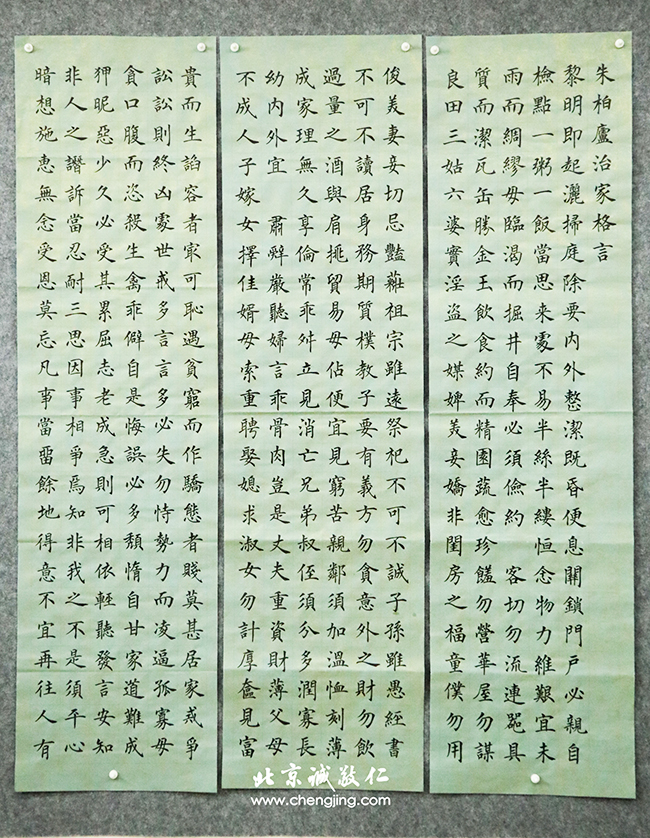 朱柏廬治家格言
黎明即起灑掃庭除要內外整潔既昏便息關鎖門戶必親自
檢點一粥一飯當思来處不易半絲半縷恒念物力維艱宜未
雨而綢繆毋臨渴而掘井自奉必須儉約 客切勿流連器具
質而潔瓦缶勝金玉飲食約而精園蔬愈珍饈勿營華屋勿謀
良田三姑六婆實淫盜之媒婢美妾嬌非閨房之福童僕勿用
俊美妻妾切忌豔祖宗雖遠祭祀不可不誠子孫雖愚經書
不可不讀居身務期質樸教子要有義方勿貪意外之財勿飲
過量之酒與肩挑貿易毋佔便宜見窮苦親鄰須加溫恤刻薄
成家理無久享倫常乖舛立見消亡兄弟叔侄須分多潤寡長
幼內外宜 肅辭嚴聽婦言乖骨肉豈是丈夫重資財薄父母
不成人子嫁女擇佳婿毋索重聘娶媳求淑女勿計厚奩見富
貴而生諂容者最可恥遇貧窮而作驕態者賤莫甚居家戒爭
訟訟則終凶處世戒多言言多必失勿恃勢力而凌逼孤寡毋
貪口腹而恣殺生禽乖僻自是悔誤必多頹惰自甘家道難成
狎昵惡少久必受其累屈志老成急則可相依輕聽發言安知
非人之譖訴當忍耐三思因事相爭焉知非我之不是須平心
暗想施惠無念受恩莫忘凡事當留餘地得意不宜再往人有
北京誠敬仁
www.chengjing.com